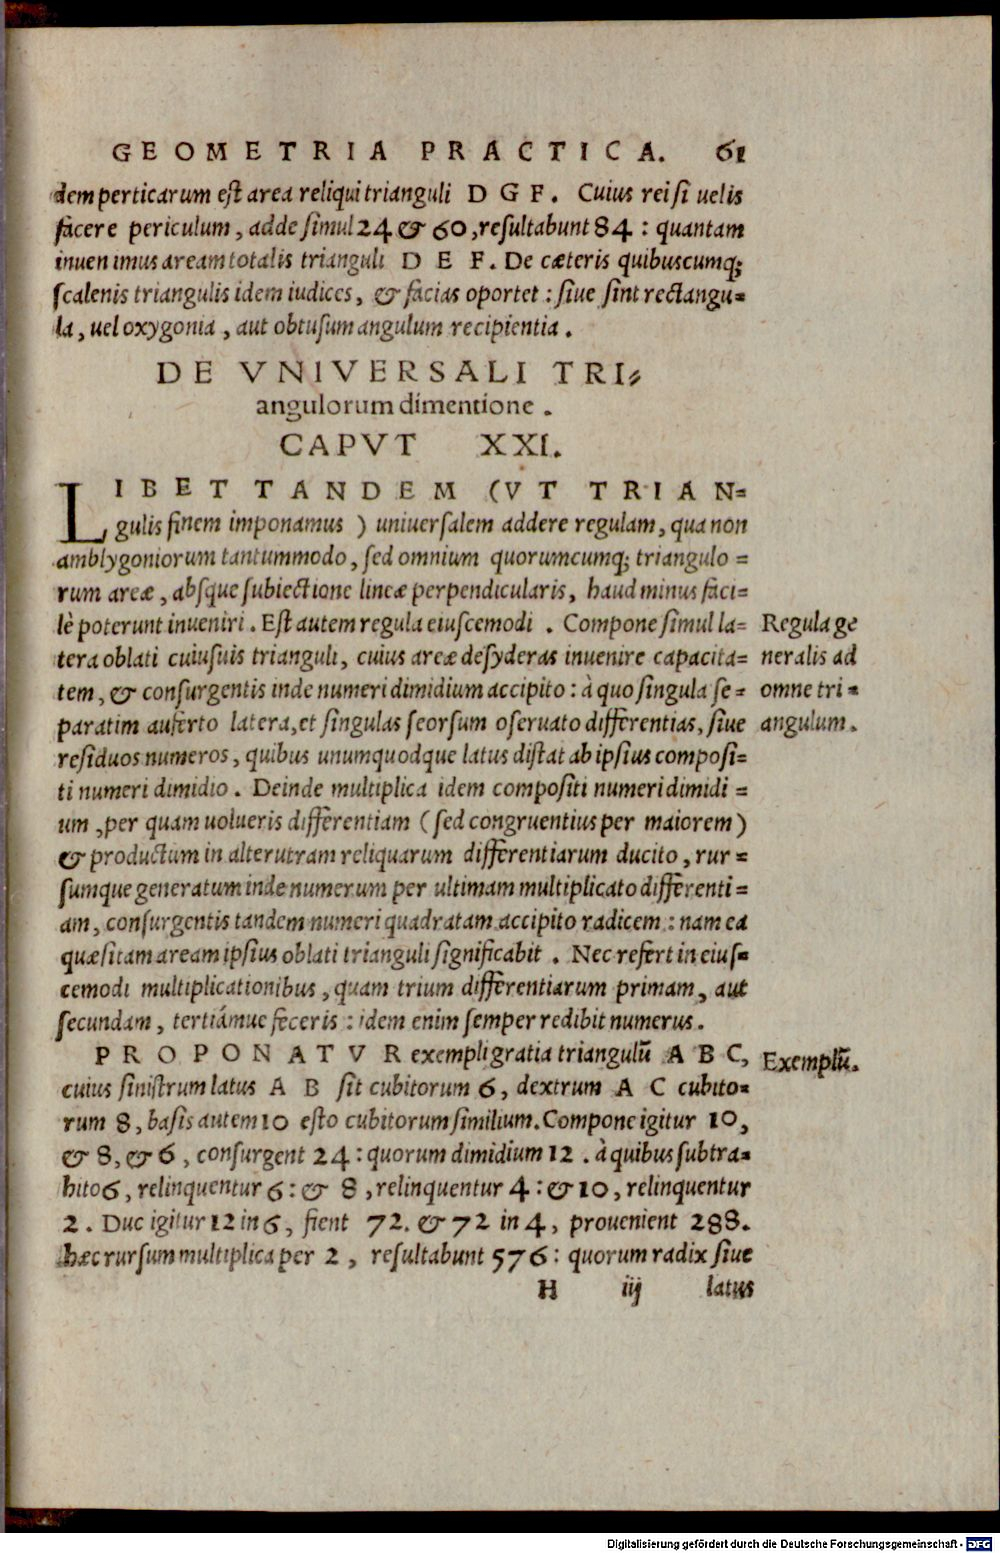 GEOMETRIA PRACTICA. 61
dem perticarum est area reliqui trianguli D G F. Cuius rei si uelis
facere periculum, adde simul 24 & 60, resultabunt 84 : quantam
inuenimus aream totalis trianguli D E F. De cæteris quibuscumq;
scalenis triangulis idem iudices, & facias oportet : siue sint rectangu=
la, uel oxygonia, aut obtusum angulum recipientia.
DE VNIVERSALI TRI=
angulorum dimentione.
CAPVT XXI.
LIBET TANDEM (VT TRIAN=
gulis finem imponamus ) uniuersalem addere regulam, qua non
amblygoniorum tantummodo, sed omnium quorumcumq; triangulo=
rum areæ, absque subiectione lineæ perpendicularis, haud minus faci=
lè poterunt inueniri. Est autem regula eiuscemodi. Compone simul la= Regula ge
tera oblati cuiusuis trianguli, cuius areæ desyderas inuenire capacita= neralis ad
tem, & consurgentis inde numeri dimidium accipito : à quo singula se= omne tri=
paratim auferto latera, et singulas seorsum oseruato differentias, siue angulum.
residuos numeros, quibus unumquodque latus distat ab ipsius composi=
ti numeri dimidio. Deinde multiplica idem compositi numeri dimidi=
um, per quam uolueris differentiam (sed congruentius per maiorem)
& productum in alterutram reliquarum differentiarum ducito, rur=
sumque generatum inde numerum per ultimam multiplicato differenti=
am, consurgentis tandem numeri quadratam accipito radicem : nam ea
quæsitam aream ipsius oblati trianguli significabit. Nec refert in eius=
cemodi multiplicationibus, quam trium differentiarum primam, aut
secundam, tertiámue feceris : idem enim semper redibit numerus.
PROPONATVR exempli gratia triangulū A B C, Exemplū.
cuius sinistrum latus A B sit cubitorum 6, dextrum A C cubito=
rum 8, basis autem 10 esto cubitorum similium. Compone igitur 10,
& 8, & 6, consurgent 24 : quorum dimidium 12. à quibus subtra=
hito 6, relinquentur 6 : & 8, relinquentur 4 : & 10, relinquentur
2. Duc igitur 12 in 6, fient 72. & 72 in 4, prouenient 288.
hæc rursum multiplica per 2, resultabunt 576 : quorum radix siue
H iij latus
Digitalisierung gefördert durch die Deutsche Forschungsgemeinschaft - DFG